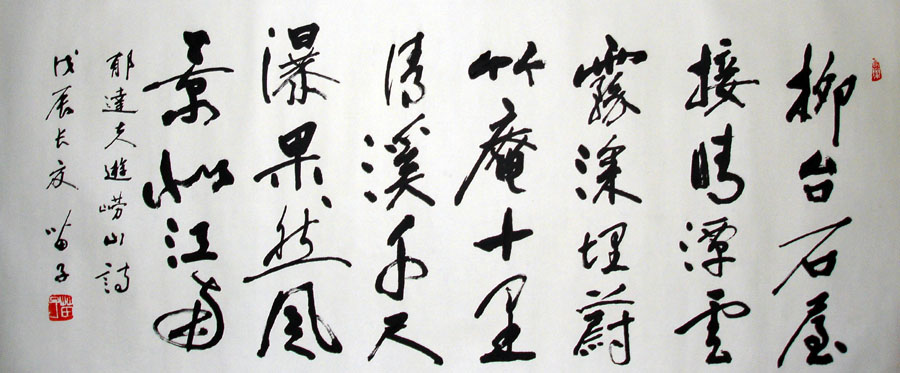 柳台石屋
接晴潭雲
霧深埋蔚
竹庵十里
清溪千尺
瀑果然風
景似江南
郁達夫遊嶗山詩
戊辰长夏 苗子